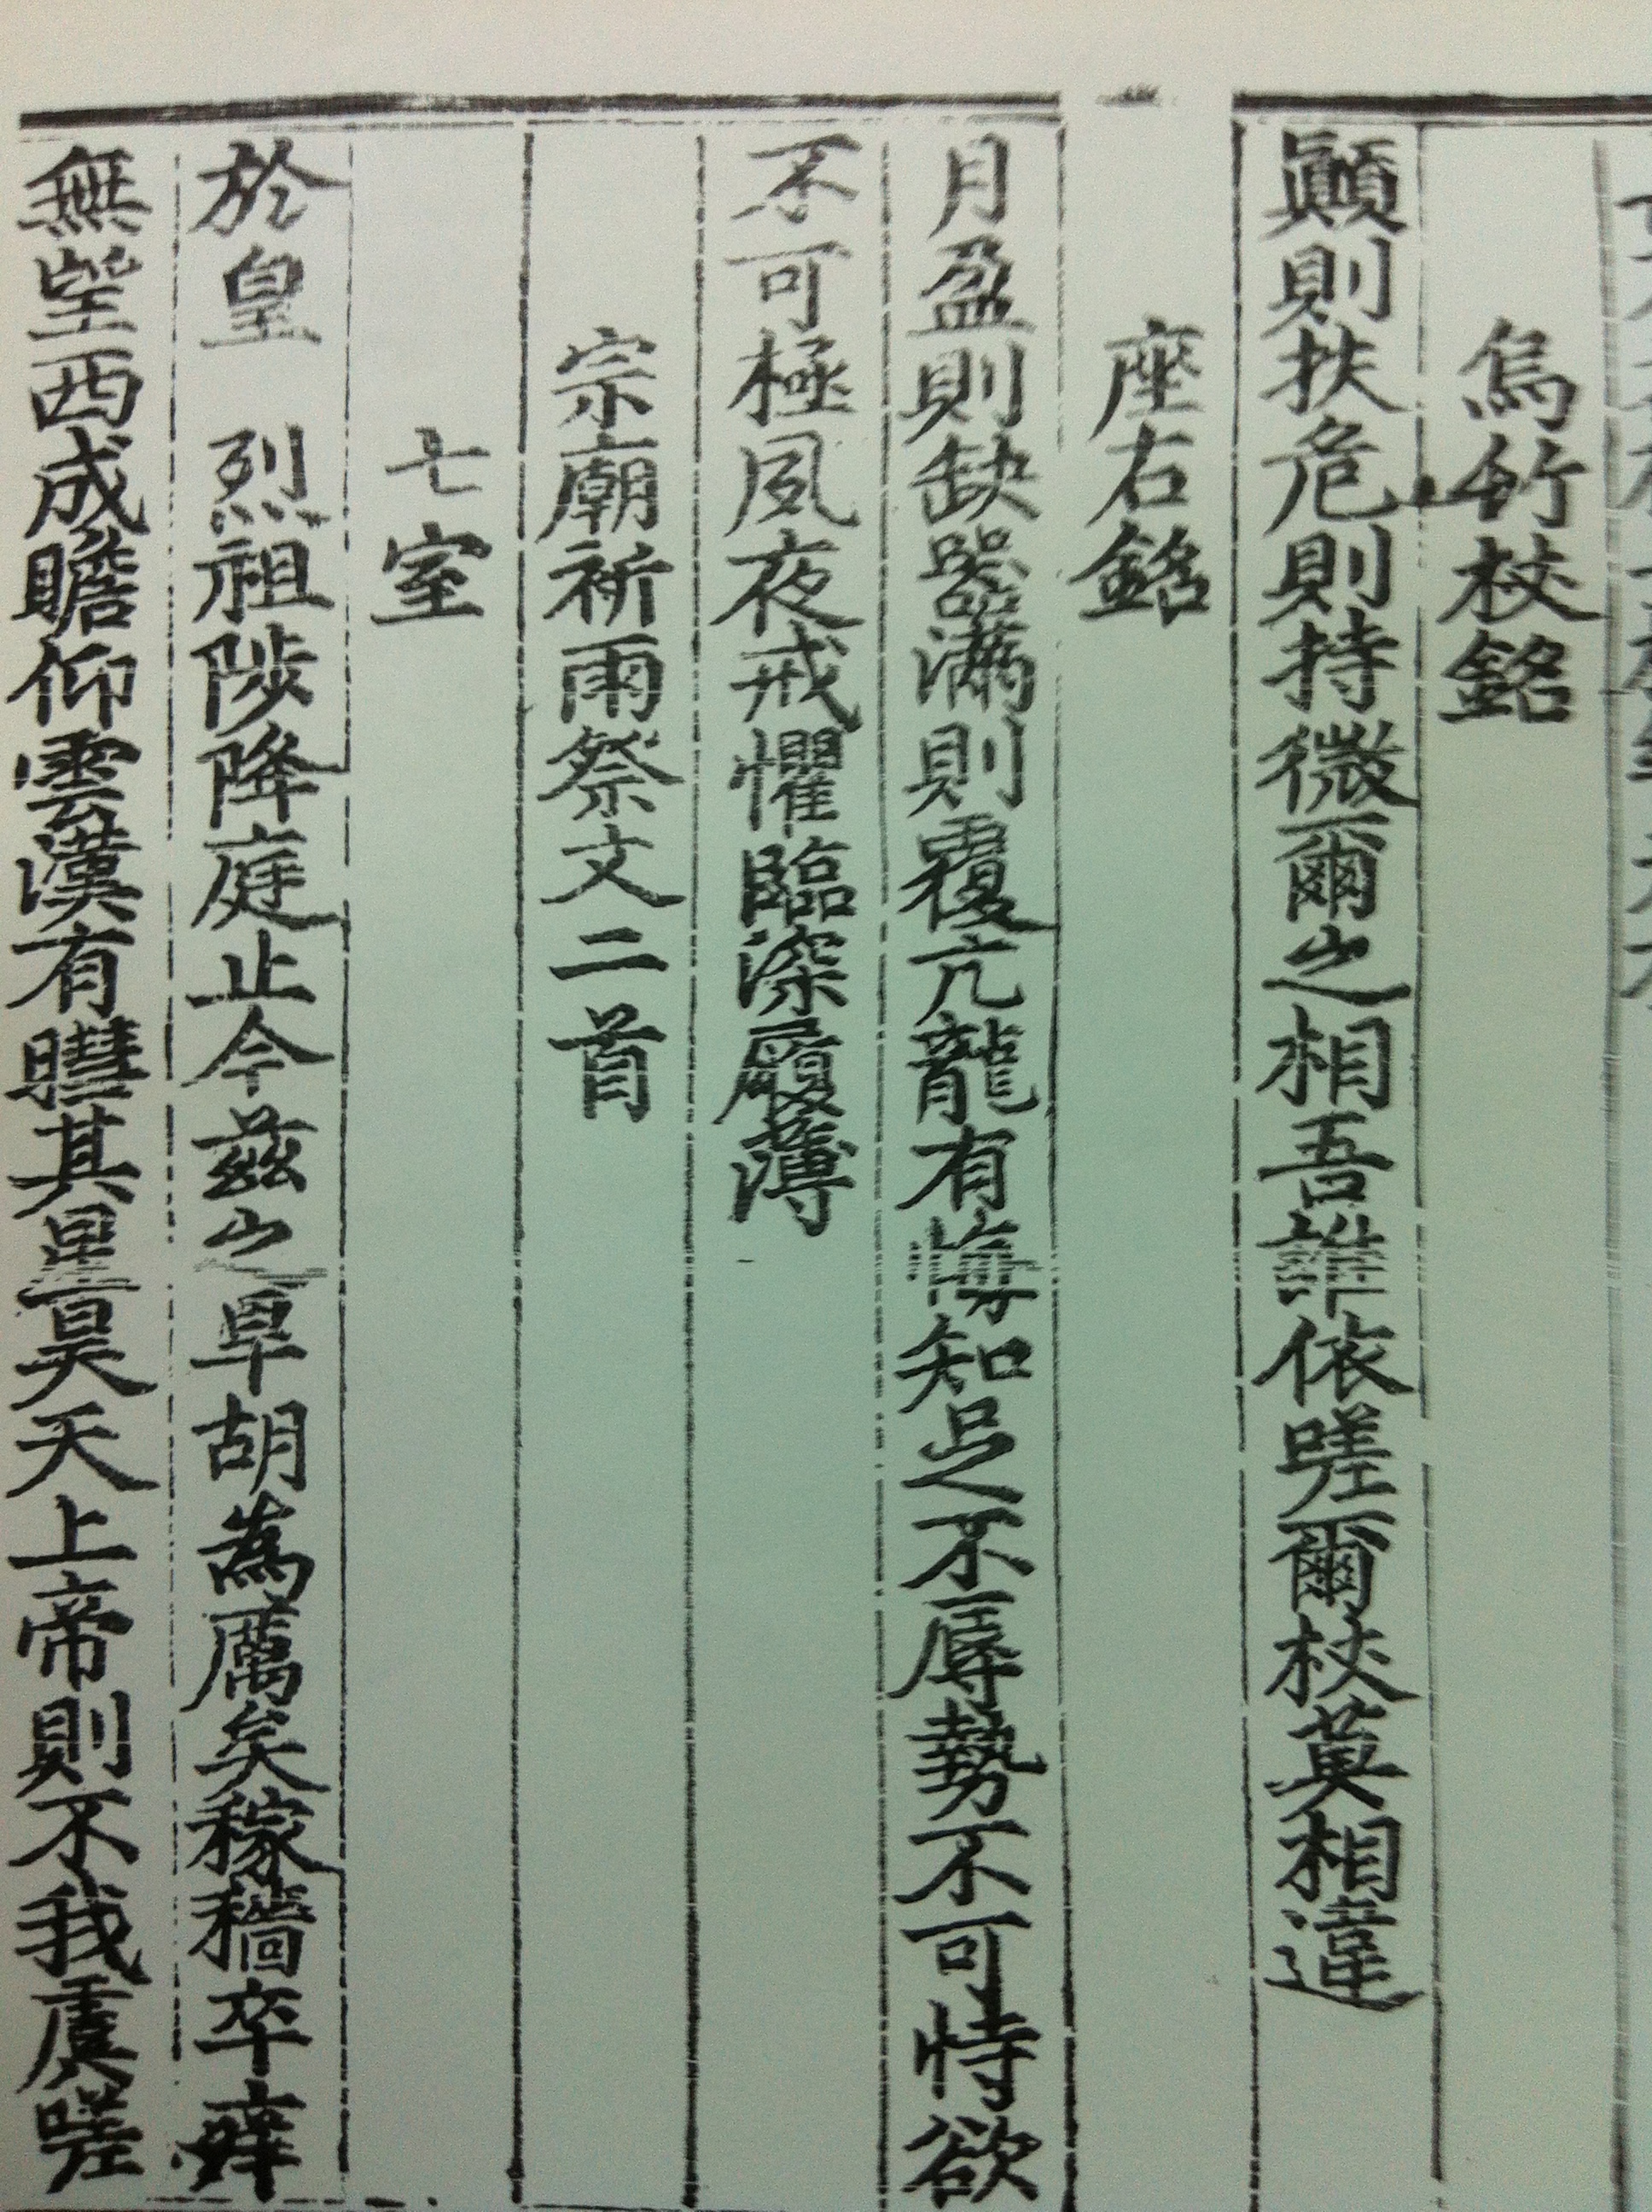 烏竹杖銘
顚則扶危則持微爾之相吾誰依嗟爾杖莫相違
座右銘
月盈則缺器滿則覆亢龍有悔知足不辱勢不可恃欲
不可極夙夜戒懼臨深履薄
宗廟祈雨祭文二首
七室
於皇 烈祖陟降庭止今兹之旱胡爲厲矣稼穡卒痒
無望西成瞻仰雲漢有嘒其星昊天上帝則不我虞嗟